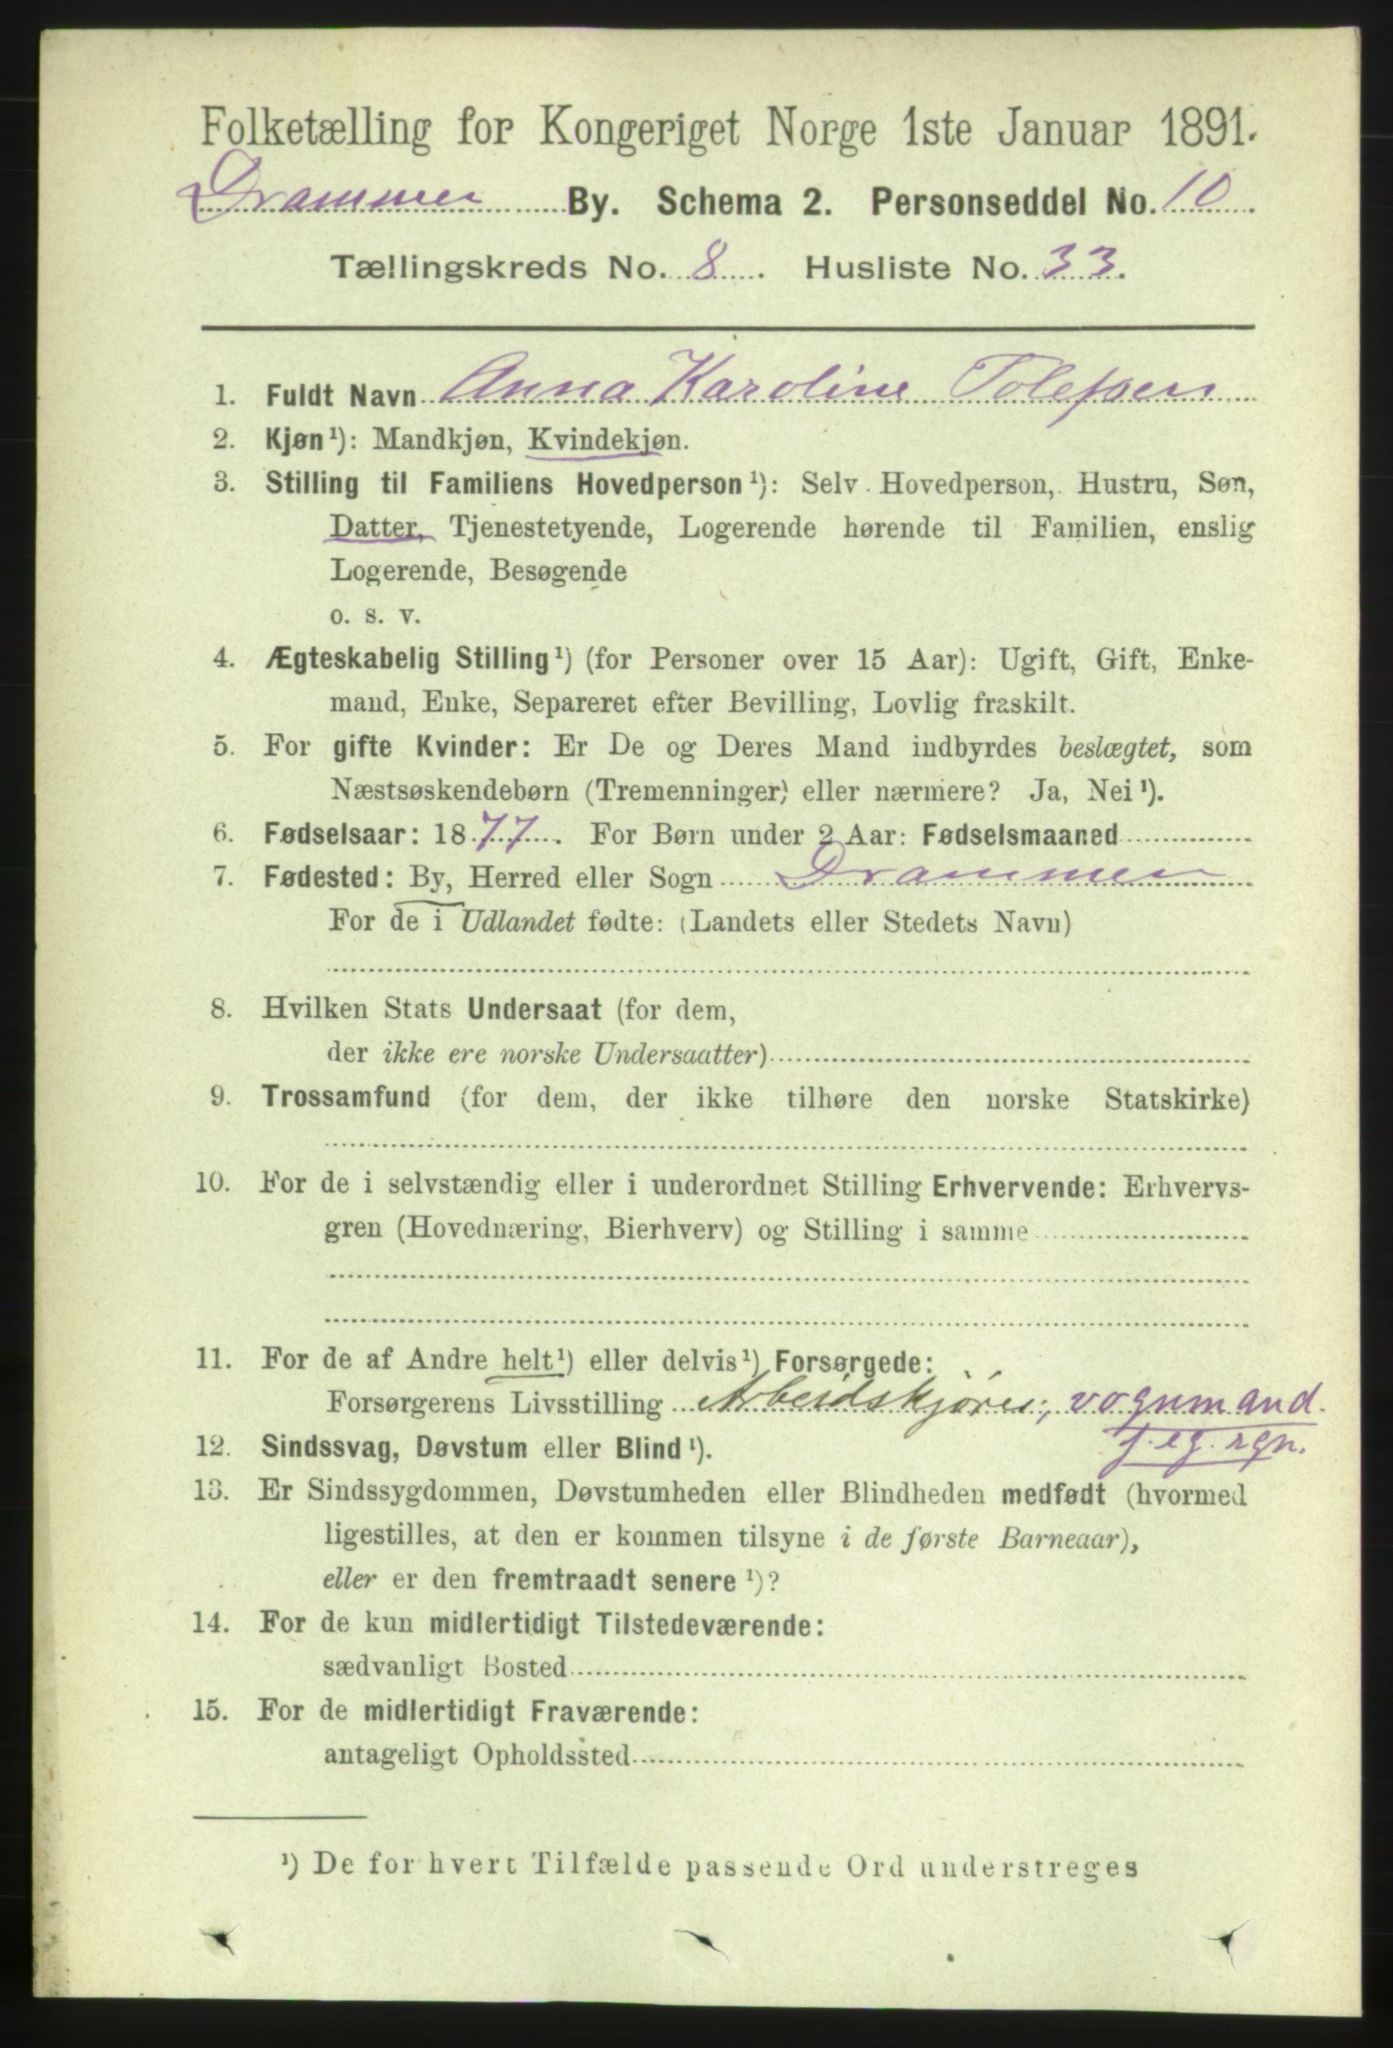 Folketælling for Kongeriget Norge 1ste Januar 1891.
Drammen By. Schema 2. Personseddel No. 10
Tællingskreds No. 8. Husliste No. 33.
1. Fuldt Navn Anna Karoline Tolefsen
2. Kjøn¹): Mandkjøn, Kvindekjøn.
3. Stilling til Familiens Hovedperson¹): Selv Hovedperson, Hustru, Søn,
Datter, Tjenestetyende, Logerende hørende til Familien, enslig
Logerende, Besøgende
o. s. v.
4. Ægteskabelig Stilling¹) (for Personer over 15 Aar): Ugift, Gift, Enke-
mand, Enke, Separeret efter Bevilling, Lovlig fraskilt.
5. For gifte Kvinder: Er De og Deres Mand indbyrdes beslægtet, som
Næstsøskendebørn (Tremenninger) eller nærmere? Ja, Nei¹).
6. Fødselsaar: 1877. For Børn under 2 Aar: Fødselsmaaned
7. Fødested: By, Herred eller Sogn Drammen
For de i Udlandet fødte: (Landets eller Stedets Navn)
8. Hvilken Stats Undersaat (for dem,
der ikke ere norske Undersaatter)
9. Trossamfund (for dem, der ikke tilhøre den norske Statskirke)
10. For de i selvstændig eller i underordnet Stilling Erhvervende: Erhvervs-
gren (Hovednæring, Bierhverv) og Stilling i samme
11. For de af Andre helt¹) eller delvis¹) Forsørgede:
Forsørgerens Livsstilling Arbeidskjører, vognmand.
f. eg. rgn.
12. Sindssvag, Døvstum eller Blind¹).
13. Er Sindssygdommen, Døvstumheden eller Blindheden medfødt (hvormed
ligestilles, at den er kommen tilsyne i de første Barneaar),
eller er den fremtraadt senere¹)?
14. For de kun midlertidigt Tilstedeværende:
sædvanligt Bosted
15. For de midlertidigt Fraværende:
antageligt Opholdssted
¹) De for hvert Tilfælde passende Ord understreges